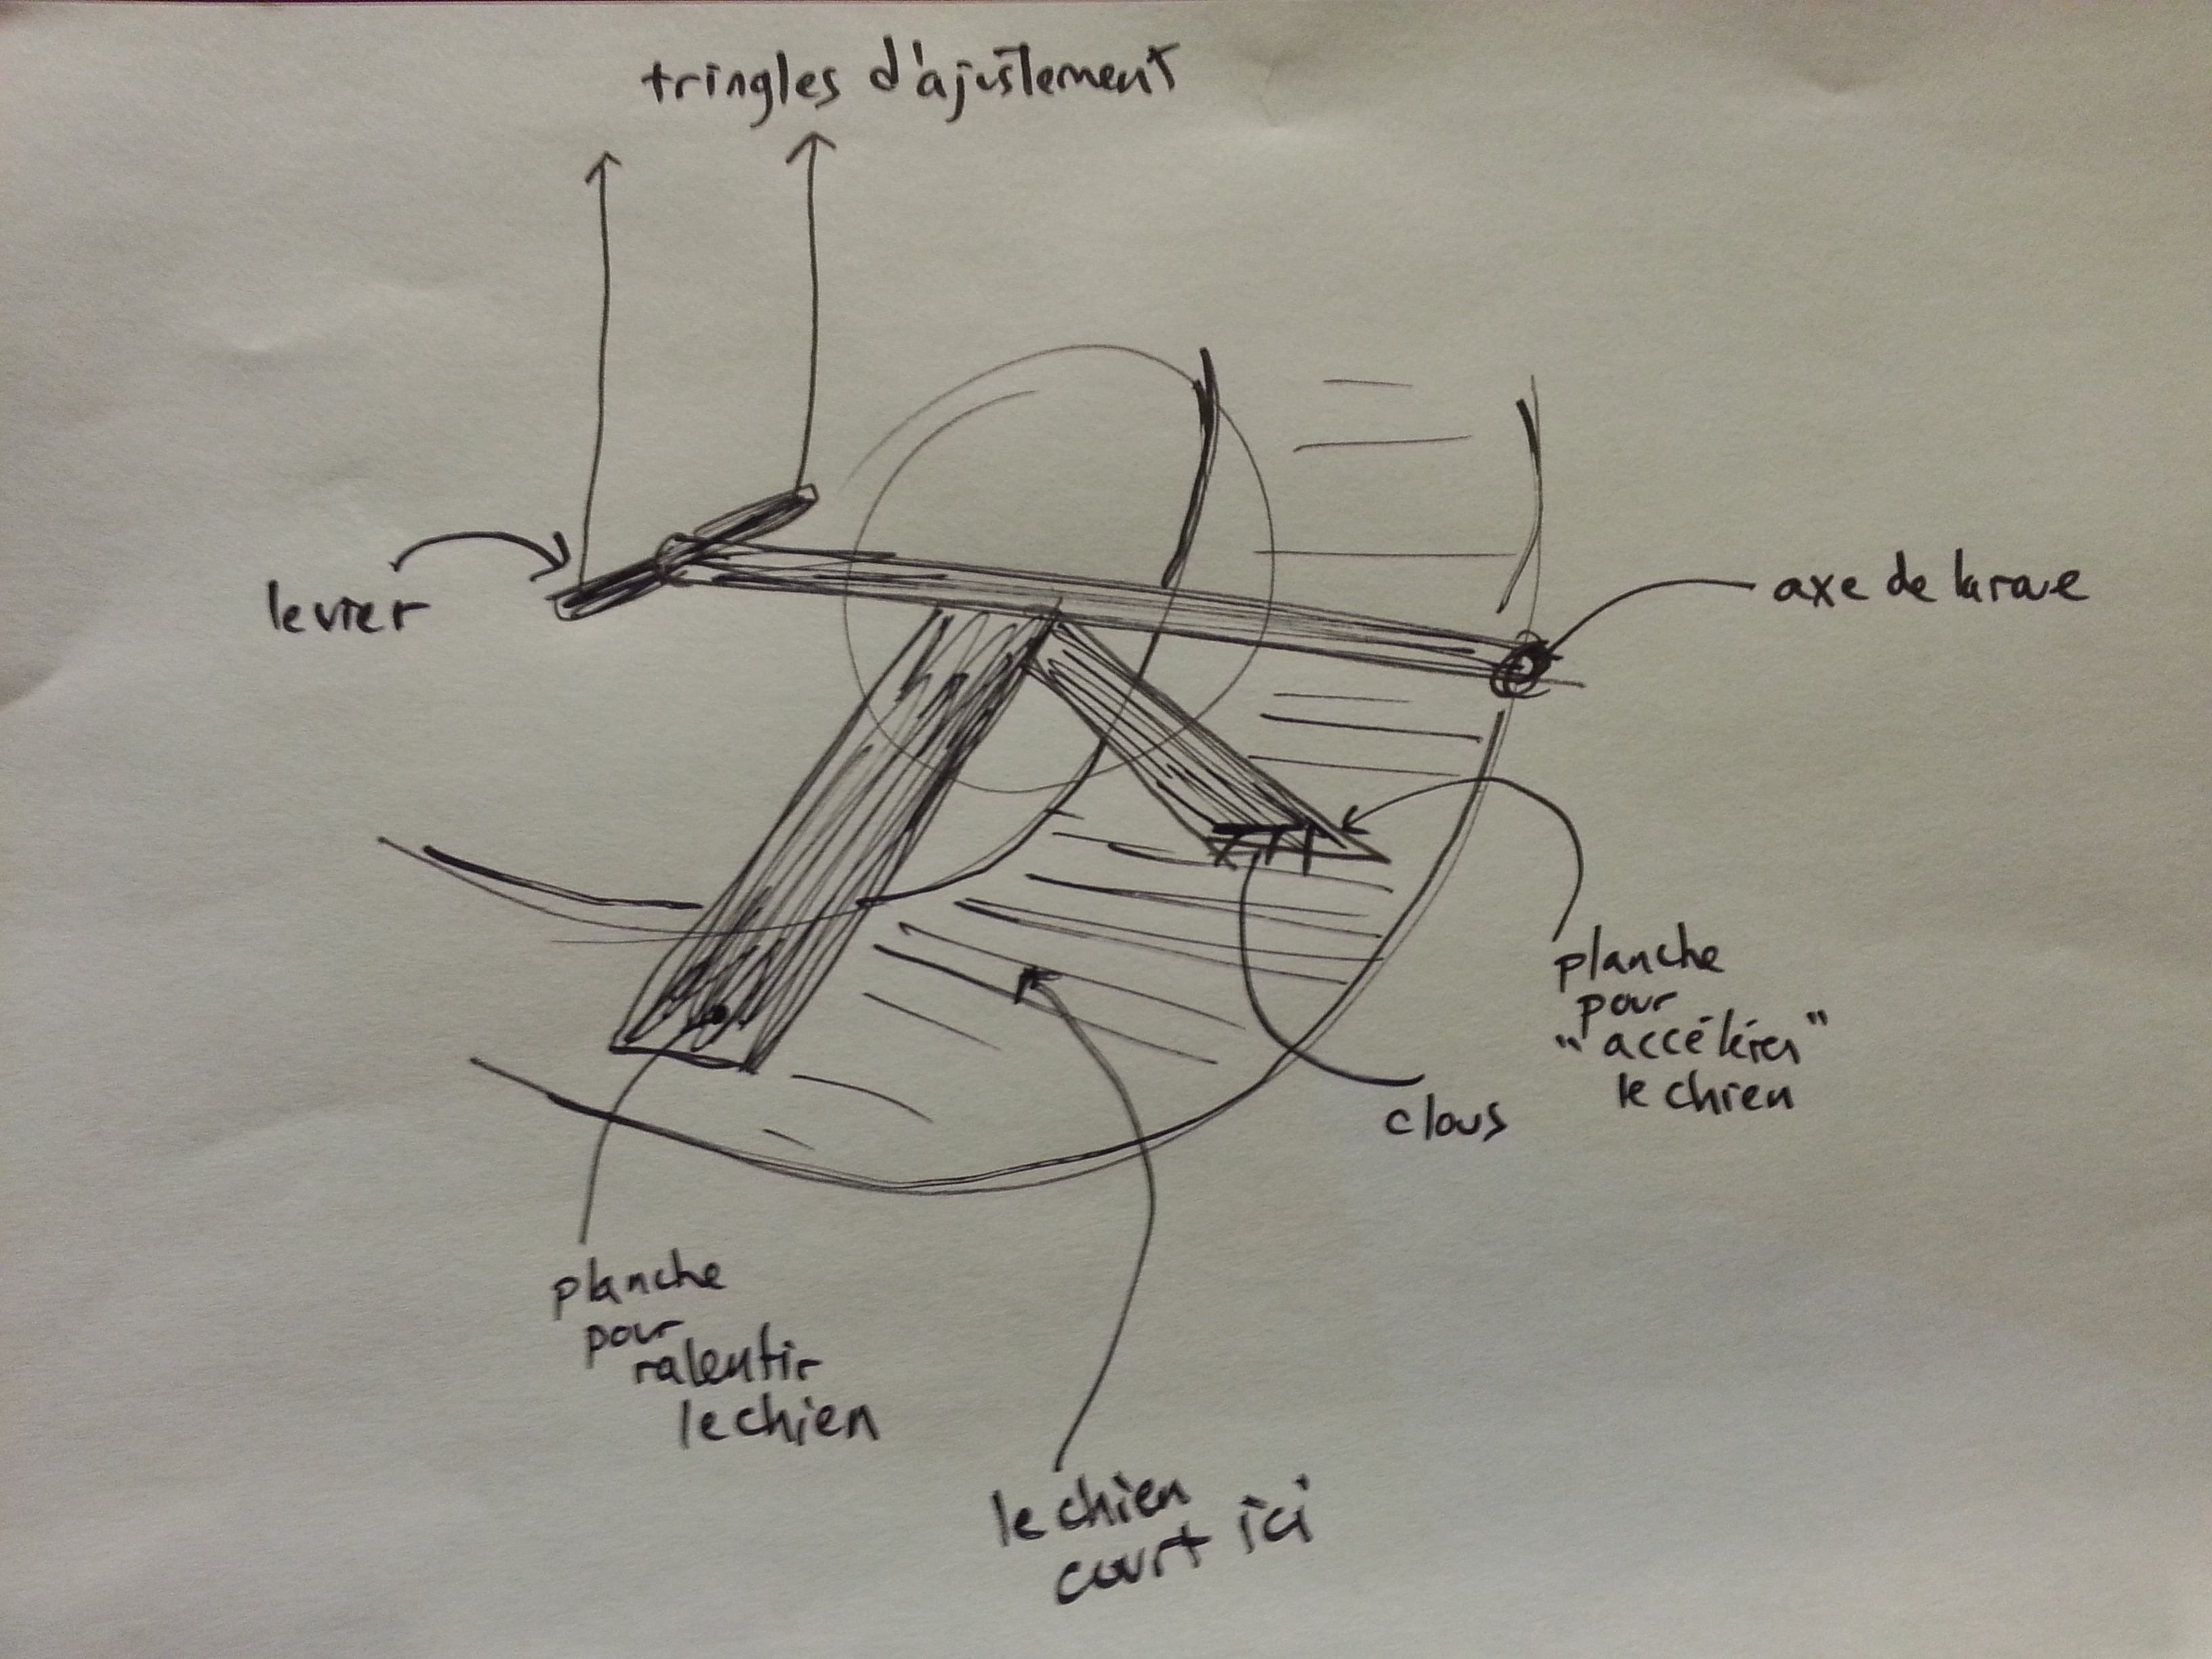 tringles d'ajustement
levier
axe de la roue
planche
pour
"accélérer"
le chien
clous
planche
pour
ralentir
le chien
le chien
court ici